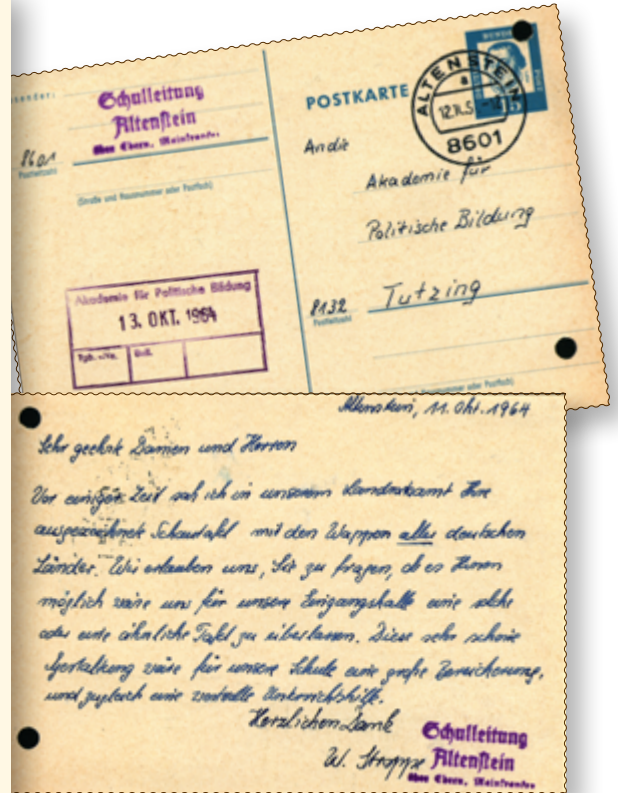 Absender:
Schulleitung
Altenstein
über Ebern, Mainfranken
8601
Postleitzahl
(Straße und Hausnummer oder Postfach)
Akademie für Politische Bildung
13. OKT. 1964
Tgb.-Nr.
POSTKARTE
ALTENSTEIN
a
8601
An die
Akademie für
Politische Bildung
8132 Tutzing
Postleitzahl
(Straße und Hausnummer oder Postfach)
Altenstein, 11. Okt. 1964
Sehr geehrte Damen und Herren
Vor einiger Zeit sah ich in unserem Landratsamt Ihre
ausgezeichnete Schautafel mit den Wappen aller deutschen
Länder. Wir erlauben uns, Sie zu fragen, ob es Ihnen
möglich wäre uns für unsere Eingangshalle eine solche
oder eine ähnliche Tafel zu überlassen. Diese sehr schöne
Gestaltung wäre für unsere Schule eine große Bereicherung,
und zugleich eine wertvolle Unterrichtshilfe.
Herzlichen Dank
W.
Schulleitung
Altenstein
über Ebern, Mainfranken